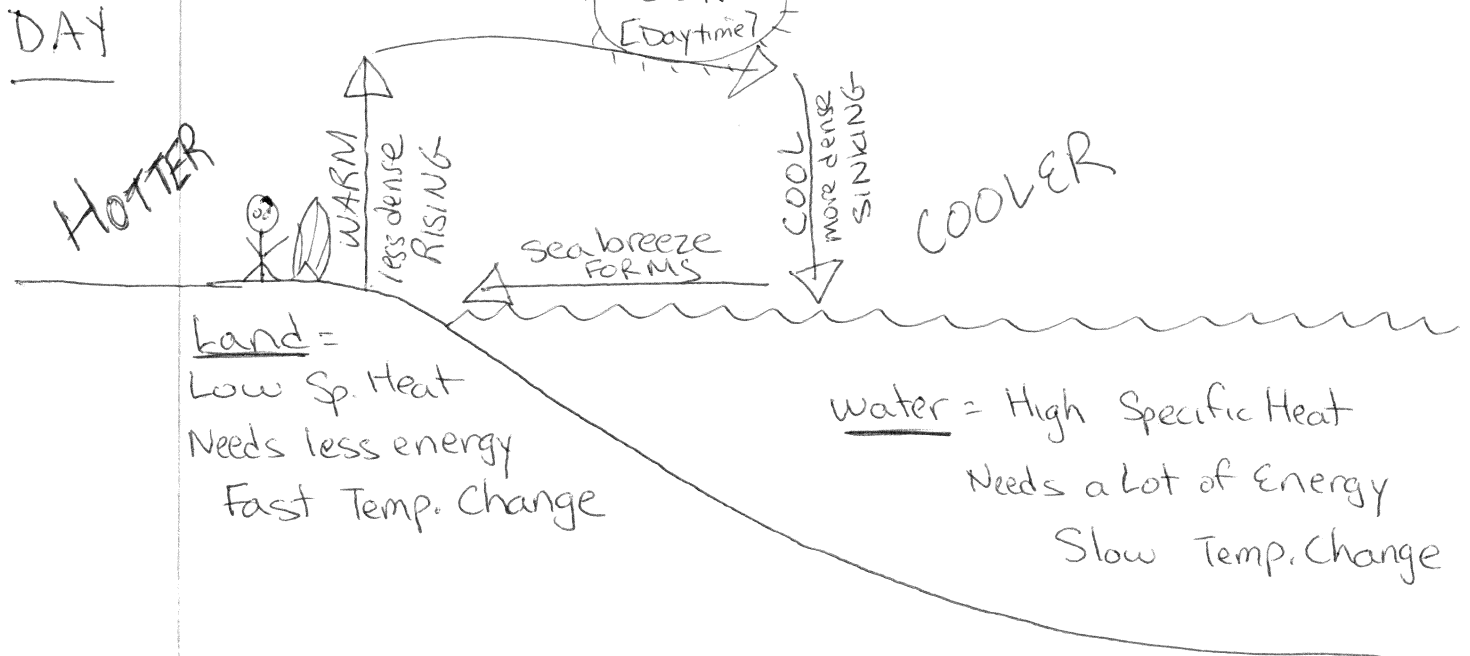 DAY
[Daytime]
HOTTER
WARM
less dense
RISING
COOL
more dense
SINKING
COOLER
sea breeze
FORMS
Land =
Low Sp. Heat
Needs less energy
Fast Temp. Change
Water = High Specific Heat
Needs a Lot of Energy
Slow Temp. Change